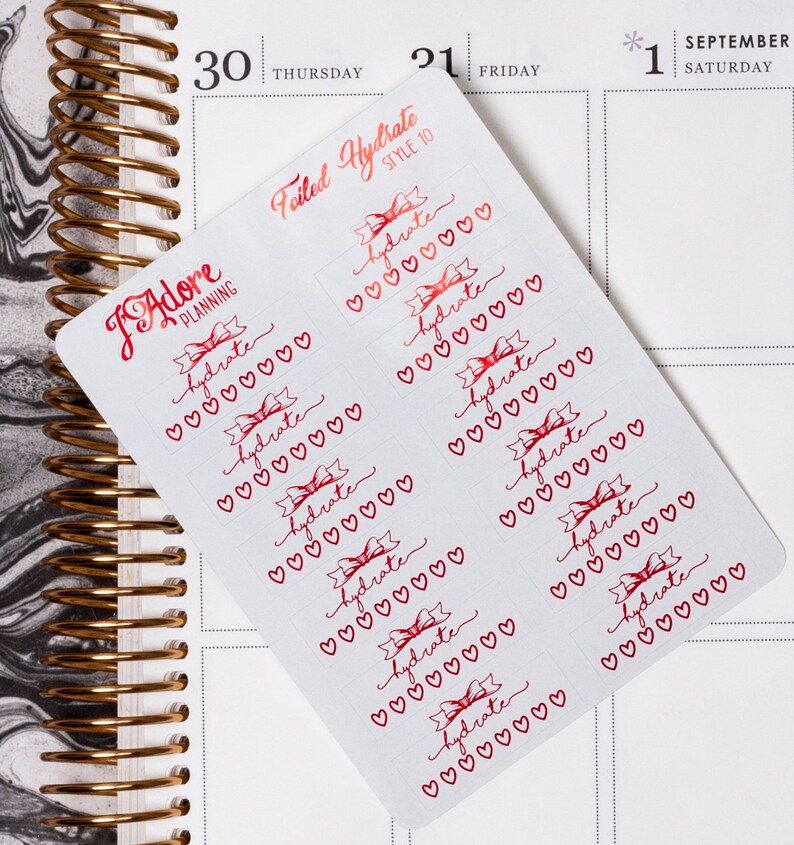 30 THURSDAY
31 FRIDAY
*1 SEPTEMBER
SATURDAY
Foiled Hydrate
STYLE 10
J'Adore
PLANNING
hydrate
hydrate
hydrate
hydrate
hydrate
hydrate
hydrate
hydrate
hydrate
hydrate
hydrate
hydrate